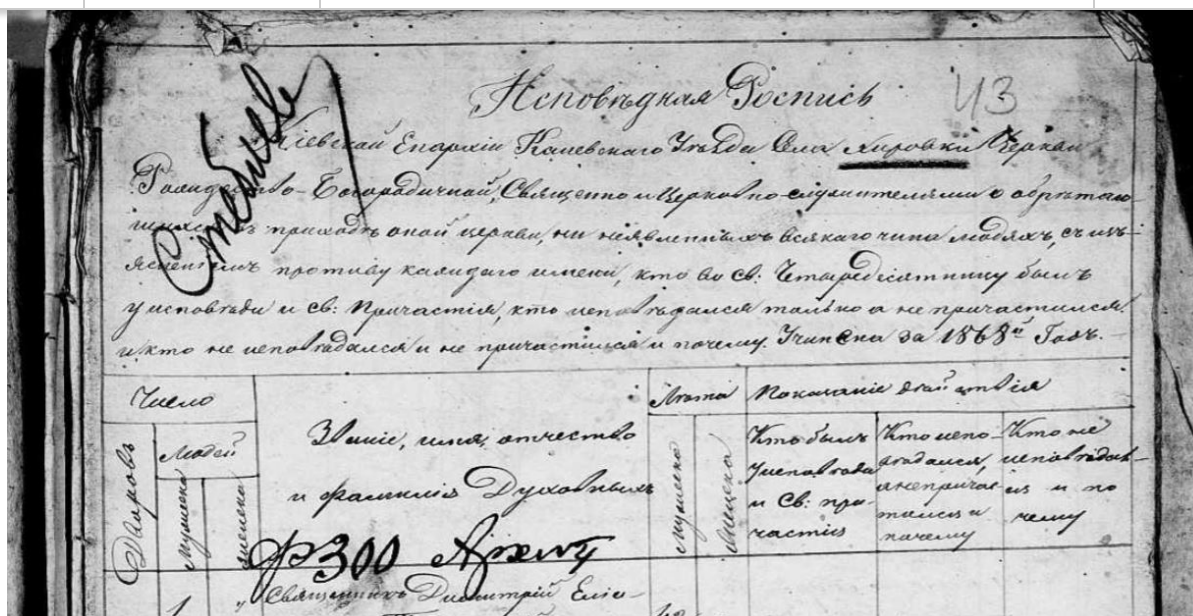 Исповѣдная Роспись
43
Стеблев
Кіевской Епархіи Каневскаго Уѣзда Села Хировки Церкви
Рождество-Богородичной, Священно и Церковно-служителями о обрѣтаю-
щихся въ приходѣ оной церкви, ни неявленныхъ всякаго чина людяхъ, съ изъ-
ясненіемъ противу каждаго имени, кто во Св: Четыредесятницу былъ
у исповѣди и св: Причастія, кто исповѣдался только а не причастился.
и кто не исповѣдался и не причастился и почему. Учинена за 1868й Годъ.
Число
Лѣта
Показаніе дѣйствія
Дворовъ
Людей
Мужеска
Женска
Званіе, имя, отчество
и фамилія Духовныхъ
Мужеска
Женска
Кто былъ
У исповѣди
и Св: при-
частія
Кто испо-
вѣдался,
а не причас
тился и
почему
Кто не
исповѣдал-
ся и по
чему
Ф300
1
Священникъ Димитрій